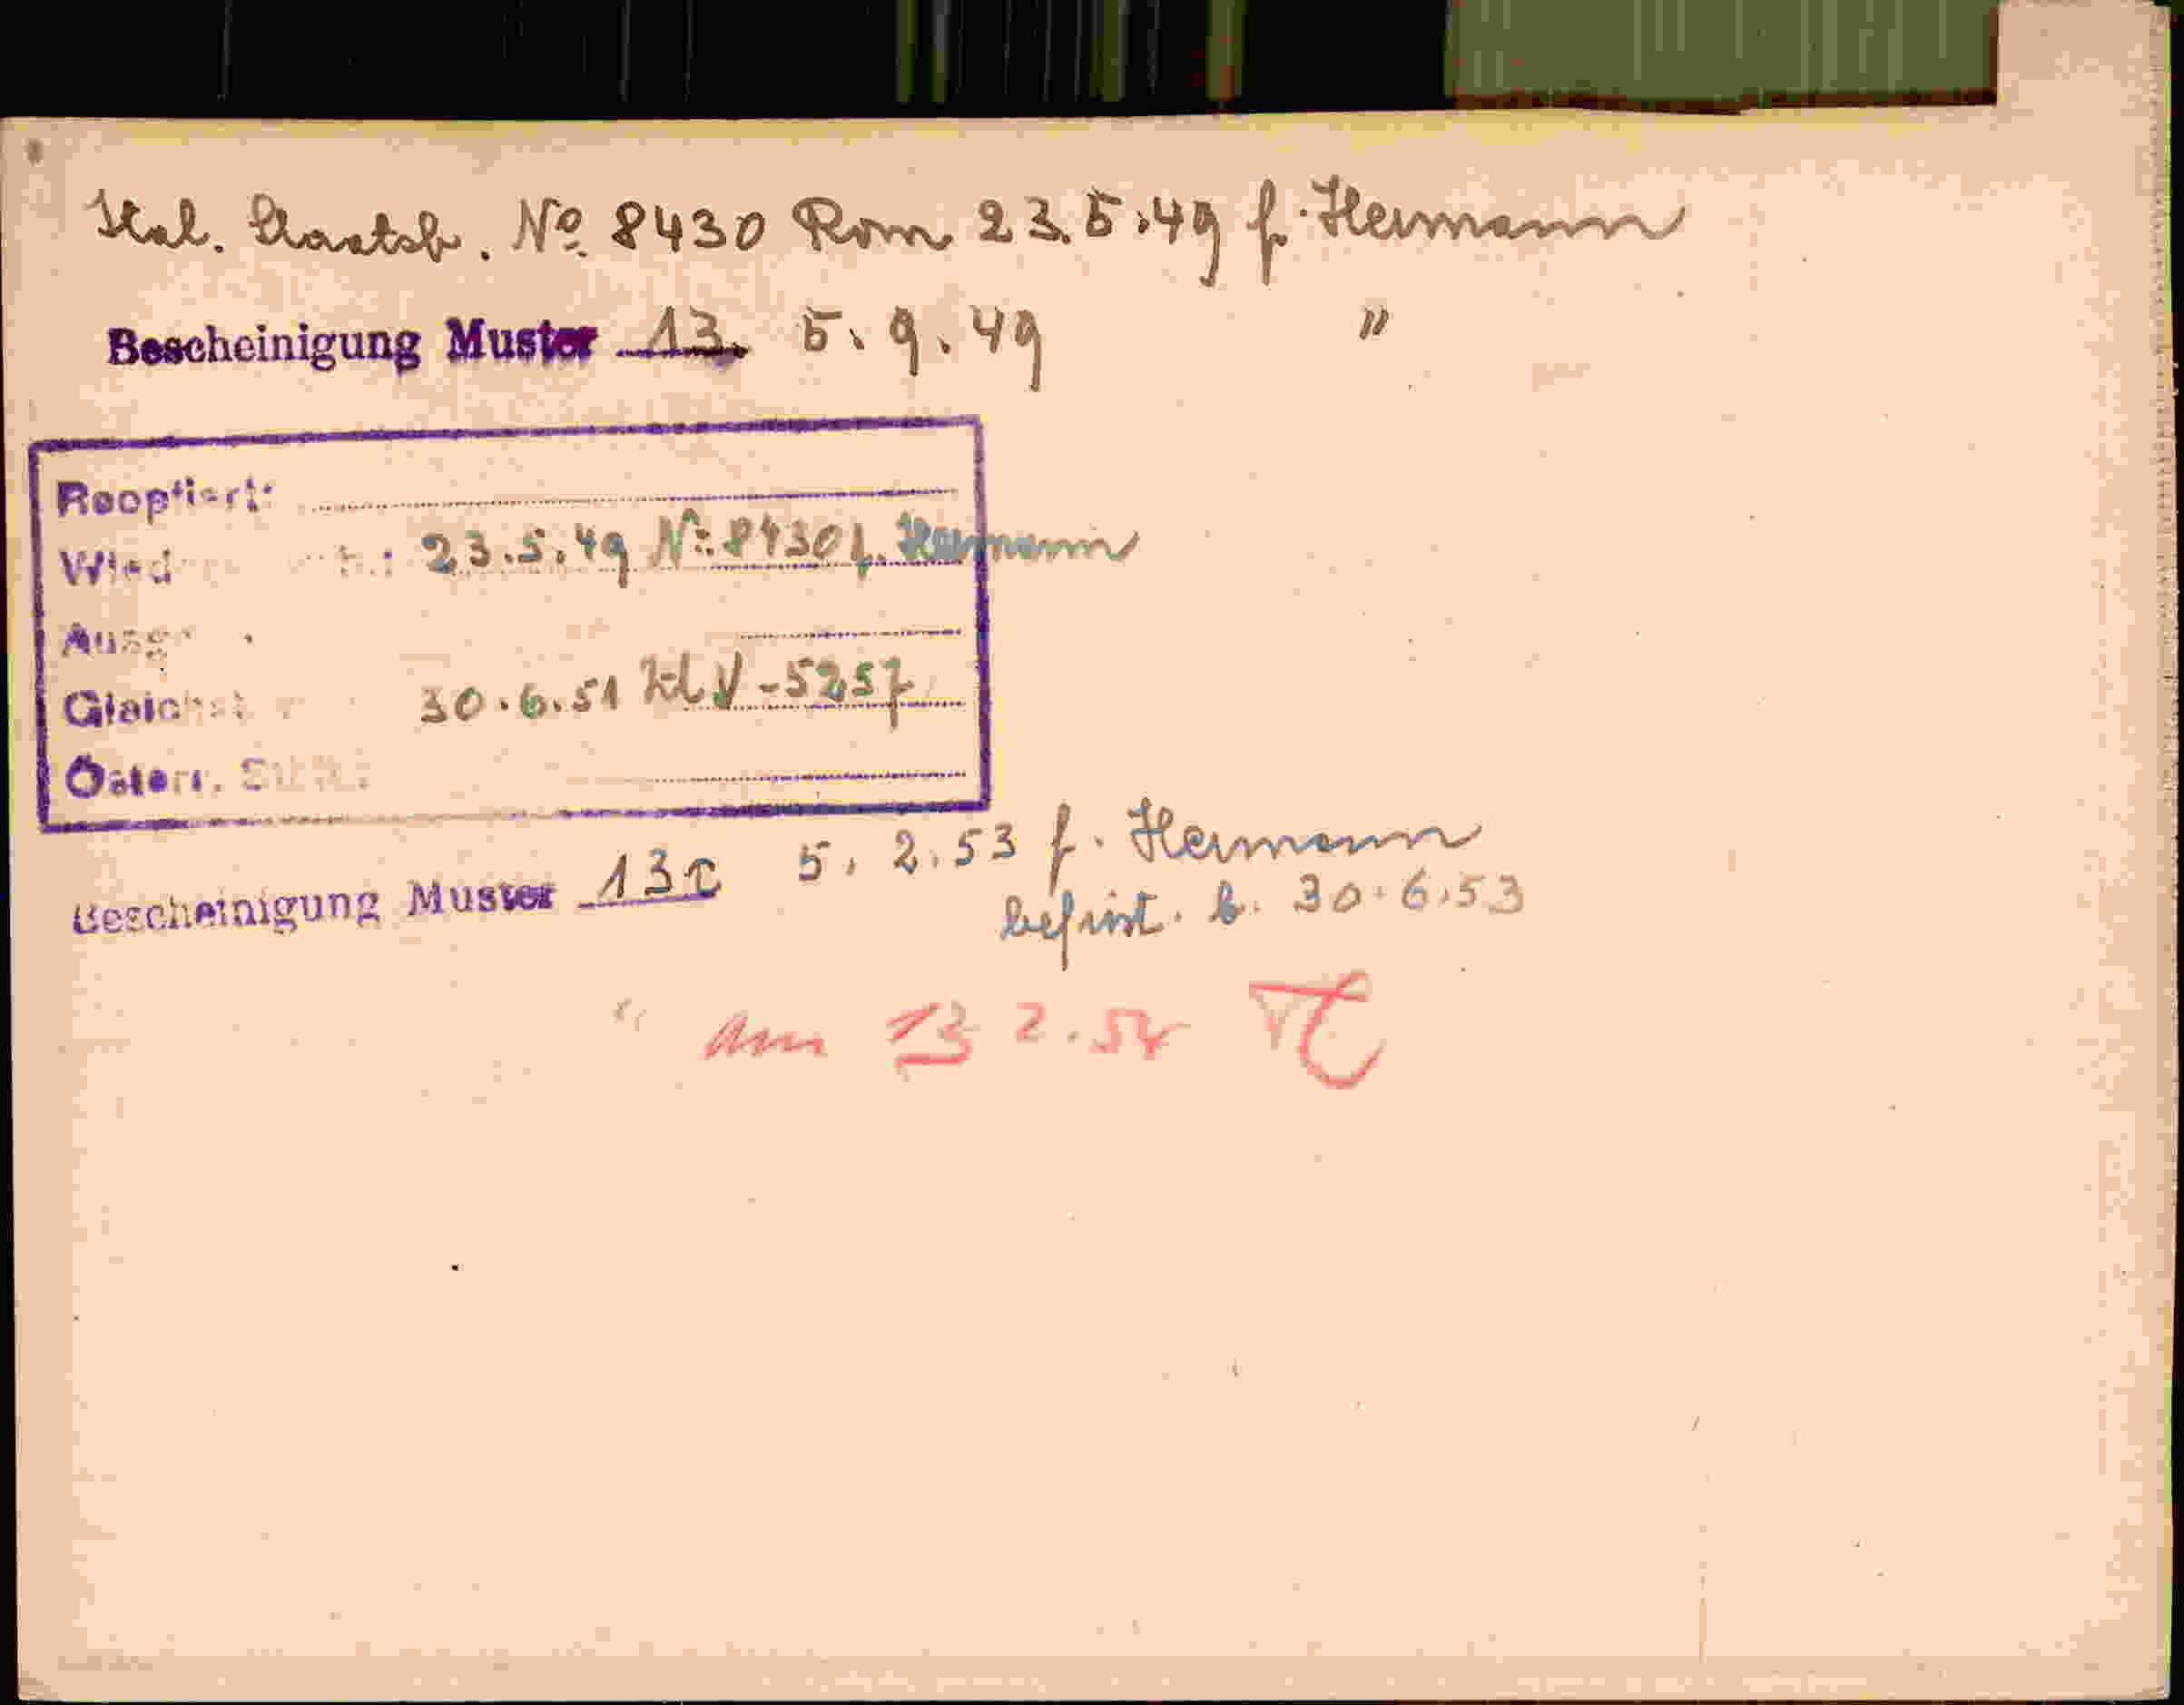 Ital. Staatsb. No. 8430 Rom 23.5.49 f. Hermann
Bescheinigung Muster 13. 5.9.49 "
Reoptiert:
23.5.49 No. 8430 f. Hermann
30.6.51 Zl V-5257
Österr.
Bescheinigung Muster 13c 5.2.53 f. Hermann
befrist. b. 30.6.53
" am 13 2.54